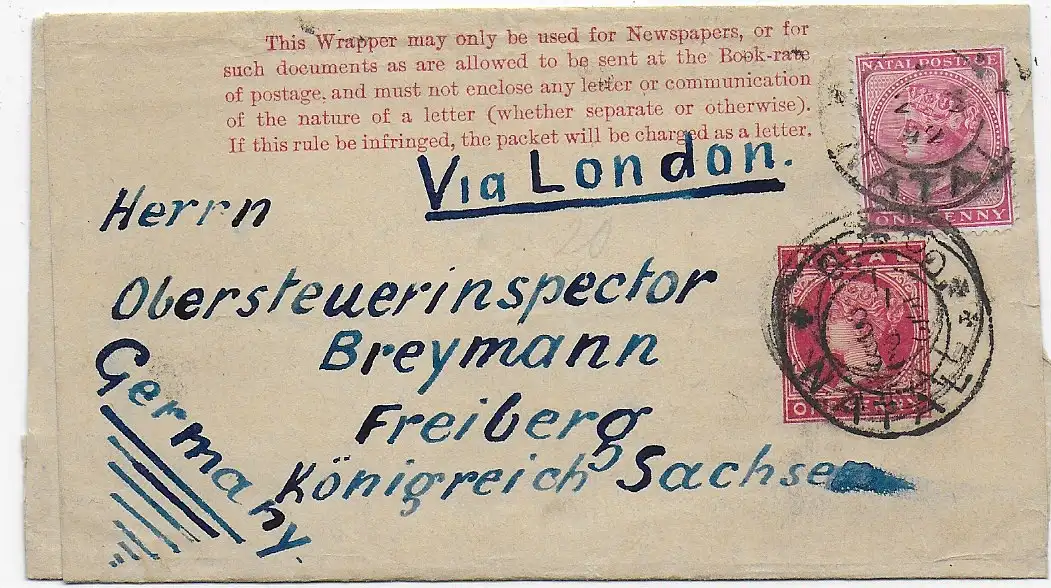 This Wrapper may only be used for Newspapers, or for
such documents as are allowed to be sent at the Book-rate
of postage, and must not enclose any letter or communication
of the nature of a letter (whether separate or otherwise).
If this rule be infringed, the packet will be charged as a letter.
NATAL POSTAGE
NATAL
ONE PENNY
Via London.
Herrn
Obersteuerinspector
Breymann
Freiberg
Königreich Sachsen
Germany.
NATAL